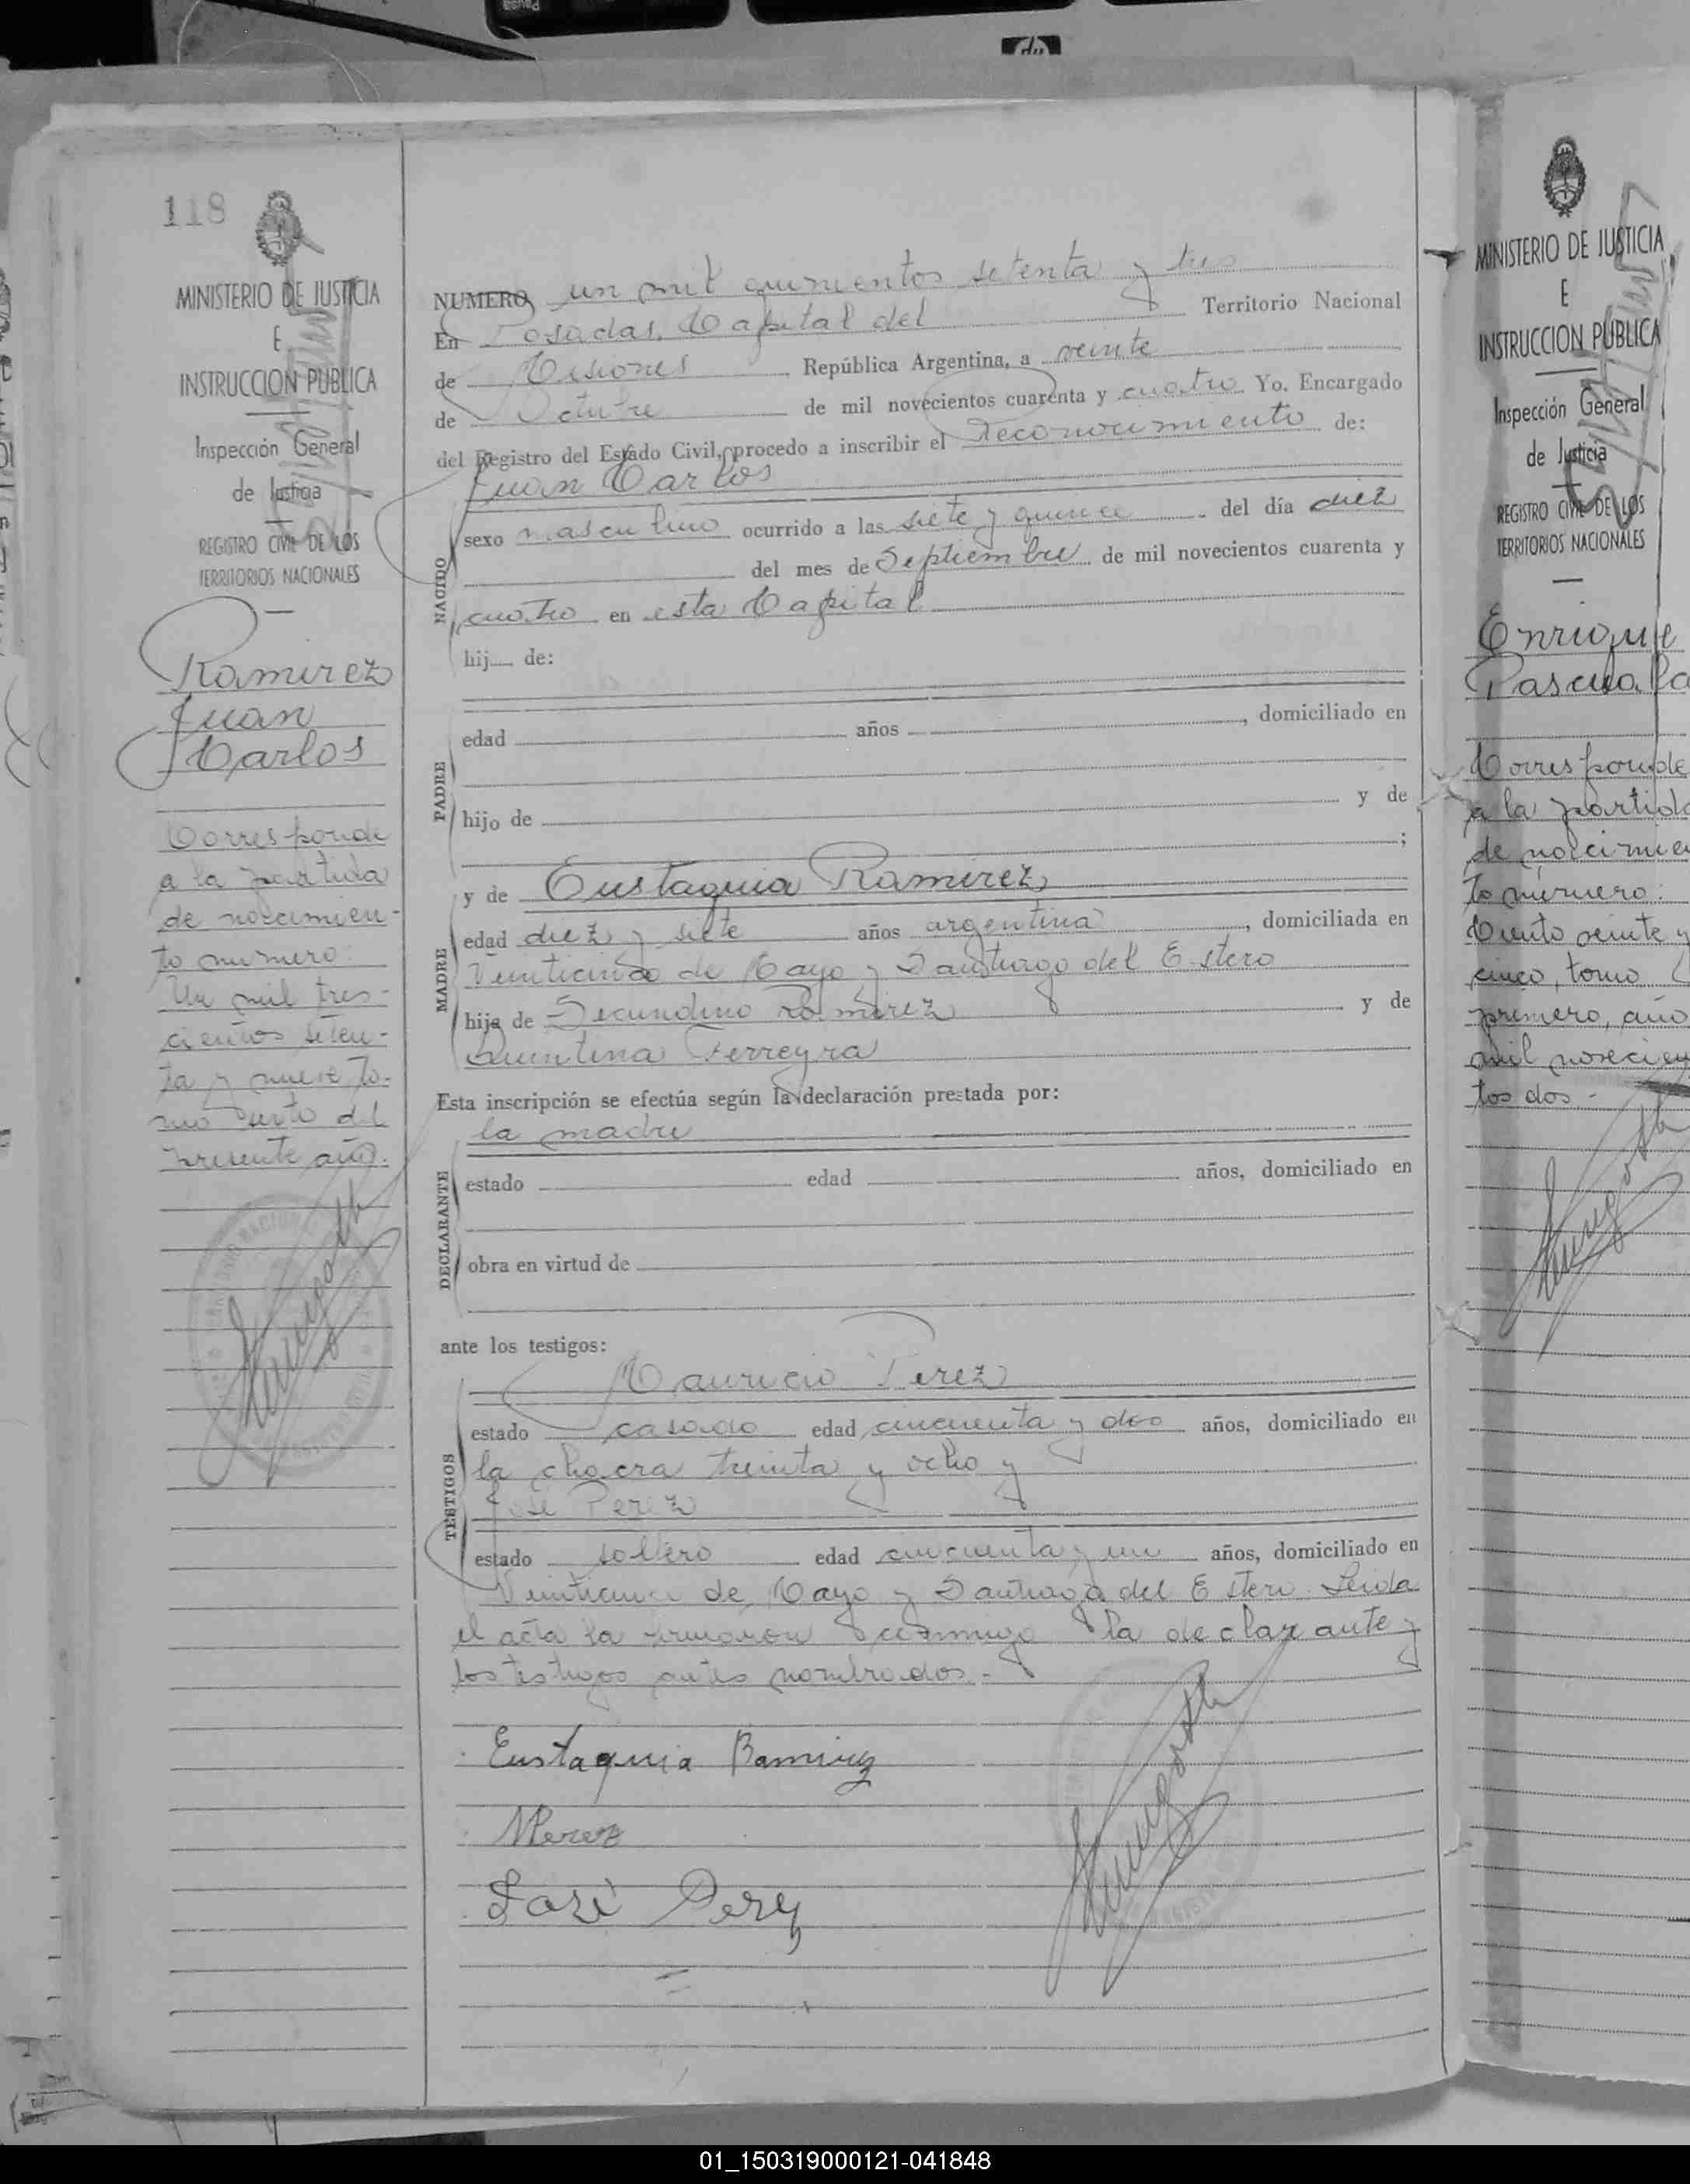 Pausa
hp
118
MINISTERIO DE JUSTICIA
E
INSTRUCCION PUBLICA
Inspección General
de Justicia
REGISTRO CIVIL DE LOS
TERRITORIOS NACIONALES
Ramirez
Juan
Carlos
Corresponde
a la partida
de nacimien-
to numero:
Un mil tres-
cientos seten-
ta y nueve to-
mo sexto del
presente año.
NUMERO un mil quinientos setenta y tres
En Posadas, Capital del Territorio Nacional
de Misiones República Argentina, a veinte
de Octubre de mil novecientos cuarenta y cuatro Yo. Encargado
del Registro del Estado Civil, procedo a inscribir el Reconocimiento de:
Juan Carlos
NACIDO
sexo masculino ocurrido a las siete y quince del día diez
del mes de Septiembre de mil novecientos cuarenta y
cuatro en esta Capital
hij de:
PADRE
edad años , domiciliado en
hijo de y de
;
y de Eustaquia Ramirez
MADRE
edad diez y siete años argentina , domiciliada en
Veinticinco de Mayo y Santiago del Estero
hija de Secundino Ramirez y de
Quintina Ferreyra
Esta inscripción se efectúa según la declaración prestada por:
la madre
DECLARANTE
estado edad años, domiciliado en
obra en virtud de
ante los testigos:
Mauricio Perez
TESTIGOS
estado casado edad cincuenta y dos años, domiciliado en
la chacra treinta y ocho y
José Perez
estado soltero edad cincuenta y un años, domiciliado en
Veinticinco de Mayo y Santiago del Estero. Leida
el acta la firmaron conmigo la declarante y
los testigos antes nombrados.-
Eustaquia Ramirez
MPerez
José Perez
MINISTERIO DE JUSTICIA
E
INSTRUCCION PUBLICA
Inspección General
de Justicia
REGISTRO CIVIL DE LOS
TERRITORIOS NACIONALES
Enrique
Pascual
Corresponde
a la partida
de nacimien
to numero:
Ciento veinte y
cinco, tomo
primero, año
mil novecien
tos dos.-
01_150319000121-041848